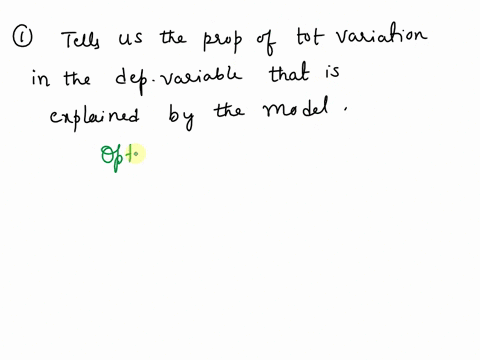 ① Tells us the prop of tot variation
in the dep. variable that is
explained by the model.
Opt